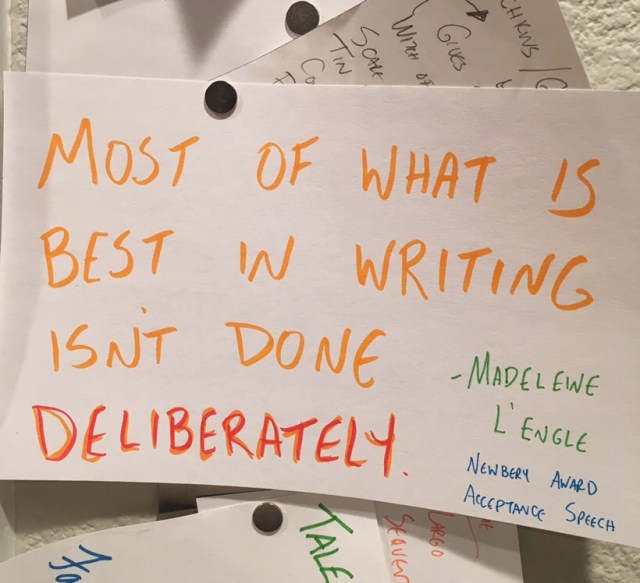 CHKINS / G
GIVES
WITCH OF
SCALE
TIN
CO
MOST OF WHAT IS
BEST IN WRITING
ISN'T DONE
DELIBERATELY.
- MADELEINE
L'ENGLE
NEWBERY AWARD
ACCEPTANCE SPEECH
TALE
LARGO
SEQUEN